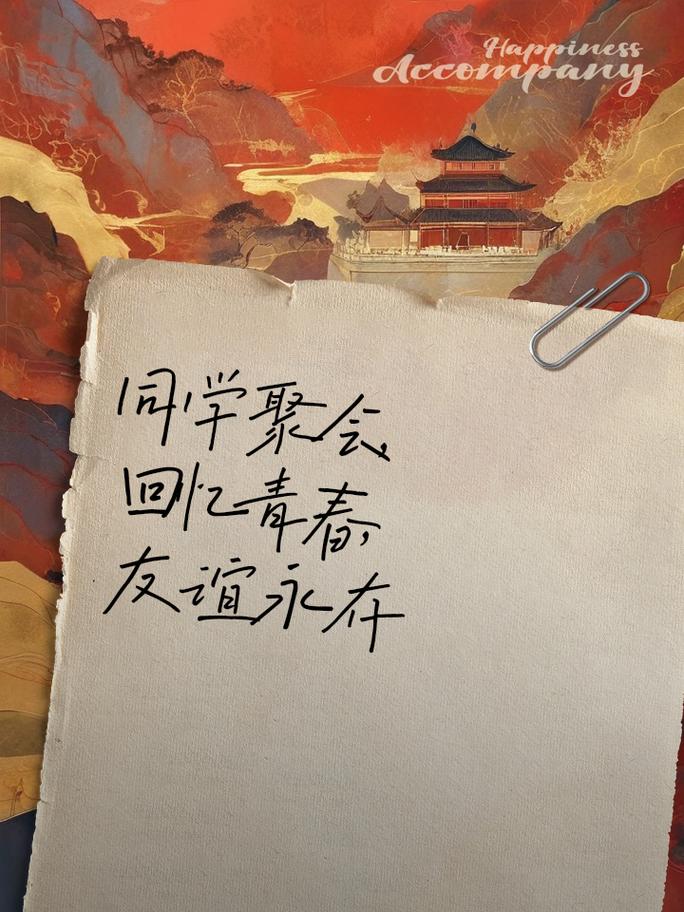 Happiness
Accompany
同学聚会,
回忆青春,
友谊永在